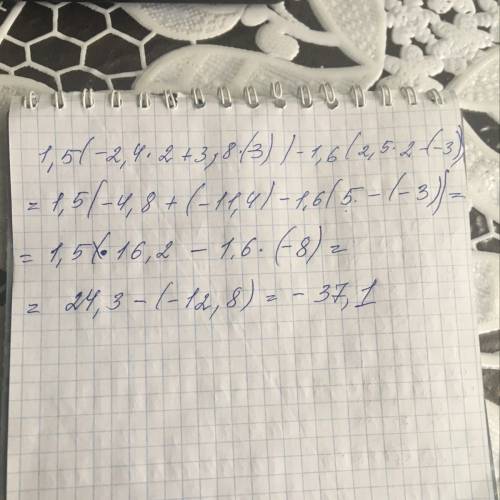 1,5(-2,4·2+3,8·(3))-1,6(2,5·2-(-3)
=1,5(-4,8+(-11,4)-1,6(5-(-3))=
=1,5(·16,2-1,6·(-8)=
=24,3-(-12,8)=-37,1